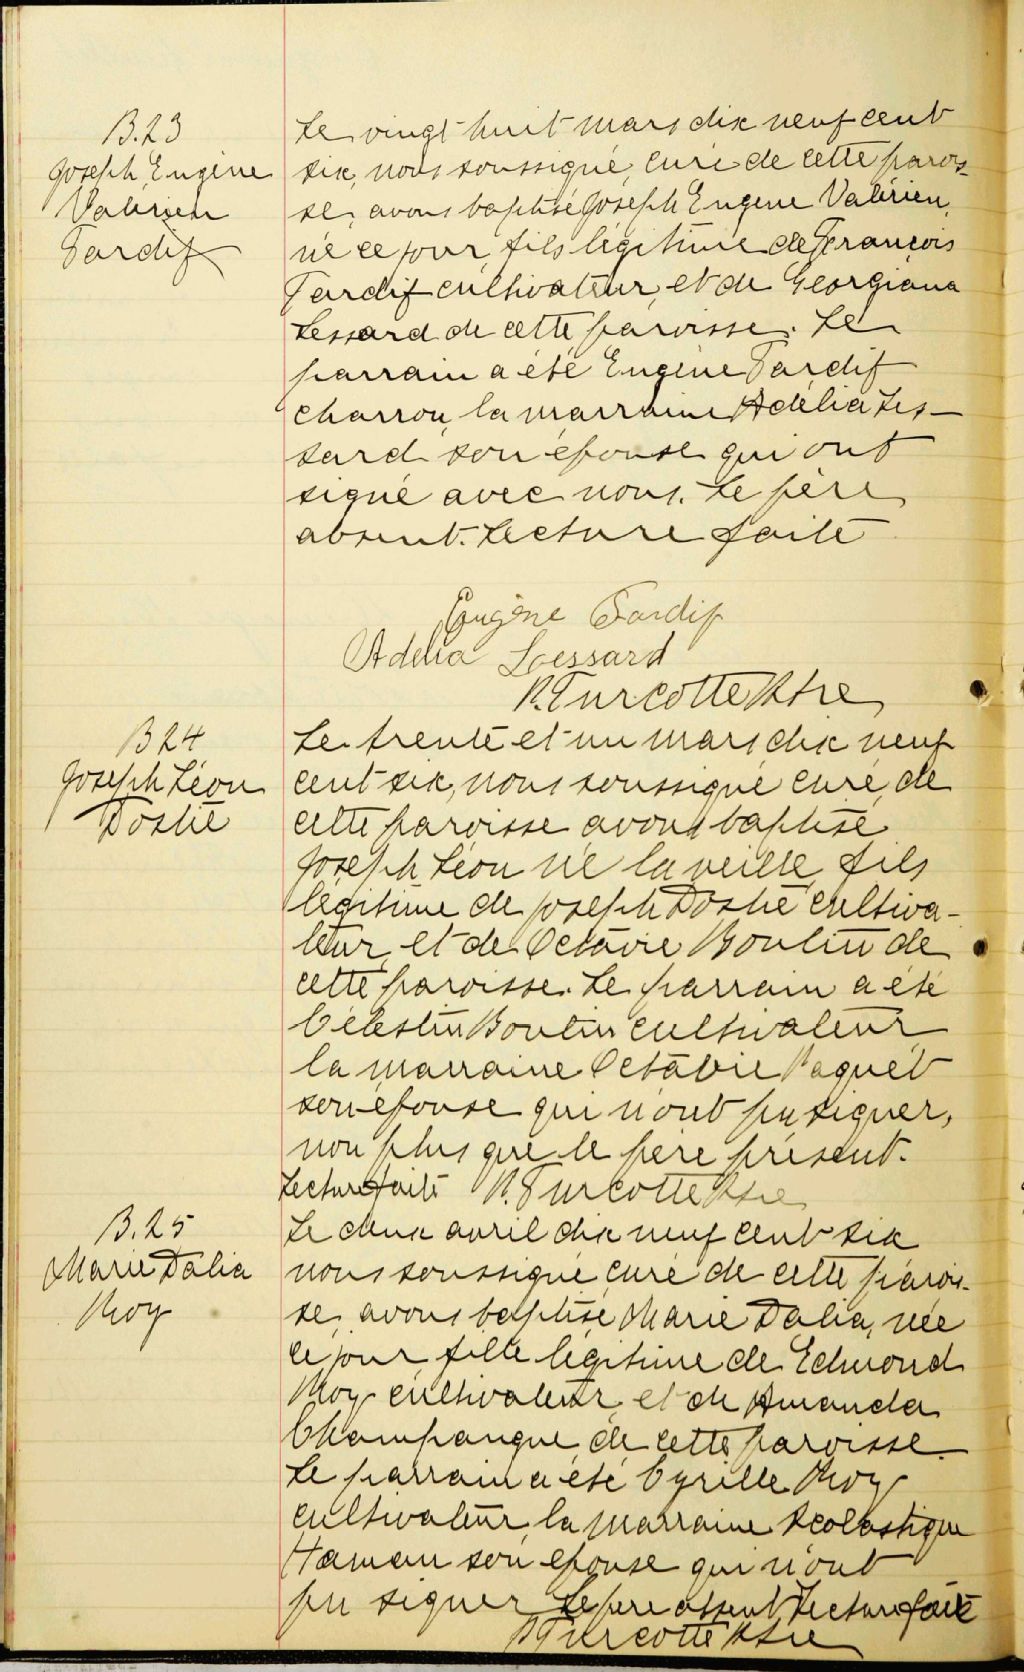 B.23
Joseph Eugène
Valérien
Tardif
Le vingt huit mars dix neuf cent
six, nous soussigné, curé de cette parois-
se, avons baptisé Joseph Eugène Valérien,
né ce jour, fils légitime de François
Tardif cultivateur, et de Georgiana
Lessard de cette paroisse. Le
parrain a été Eugène Tardif
charron, la marraine Adélia Les-
sard son épouse qui ont
signé avec nous. Le père
absent. Lecture faite
Eugène Tardif
Adelia Lessard
Turcotte Ptre
B 24
Joseph Léon
Dostie
Le trente et un mars dix neuf
cent six, nous soussigné curé de
cette paroisse avons baptisé
Joseph Léon né la veille, fils
légitime de Joseph Dostie cultiva-
teur, et de Octavie Boulin de
cette paroisse. Le parrain a été
Célestin Boutin cultivateur,
la marraine Octavie Paquet
son épouse qui n'ont pu signer,
non plus que le père présent.
Lecture faite Turcotte Ptre
B.25
Marie Dalia
Roy
Le deux avril dix neuf cent six
nous soussigné curé de cette parois-
se, avons baptisé Marie Dalia, née
ce jour fille légitime de Edmond
Roy cultivateur, et de Amanda
Champangue de cette paroisse.
Le parrain a été Cyrille Roy
cultivateur, la marraine Scolastique
Haman son épouse qui n'ont
pu signer Le pere absent Lecture faite
Turcotte Ptre